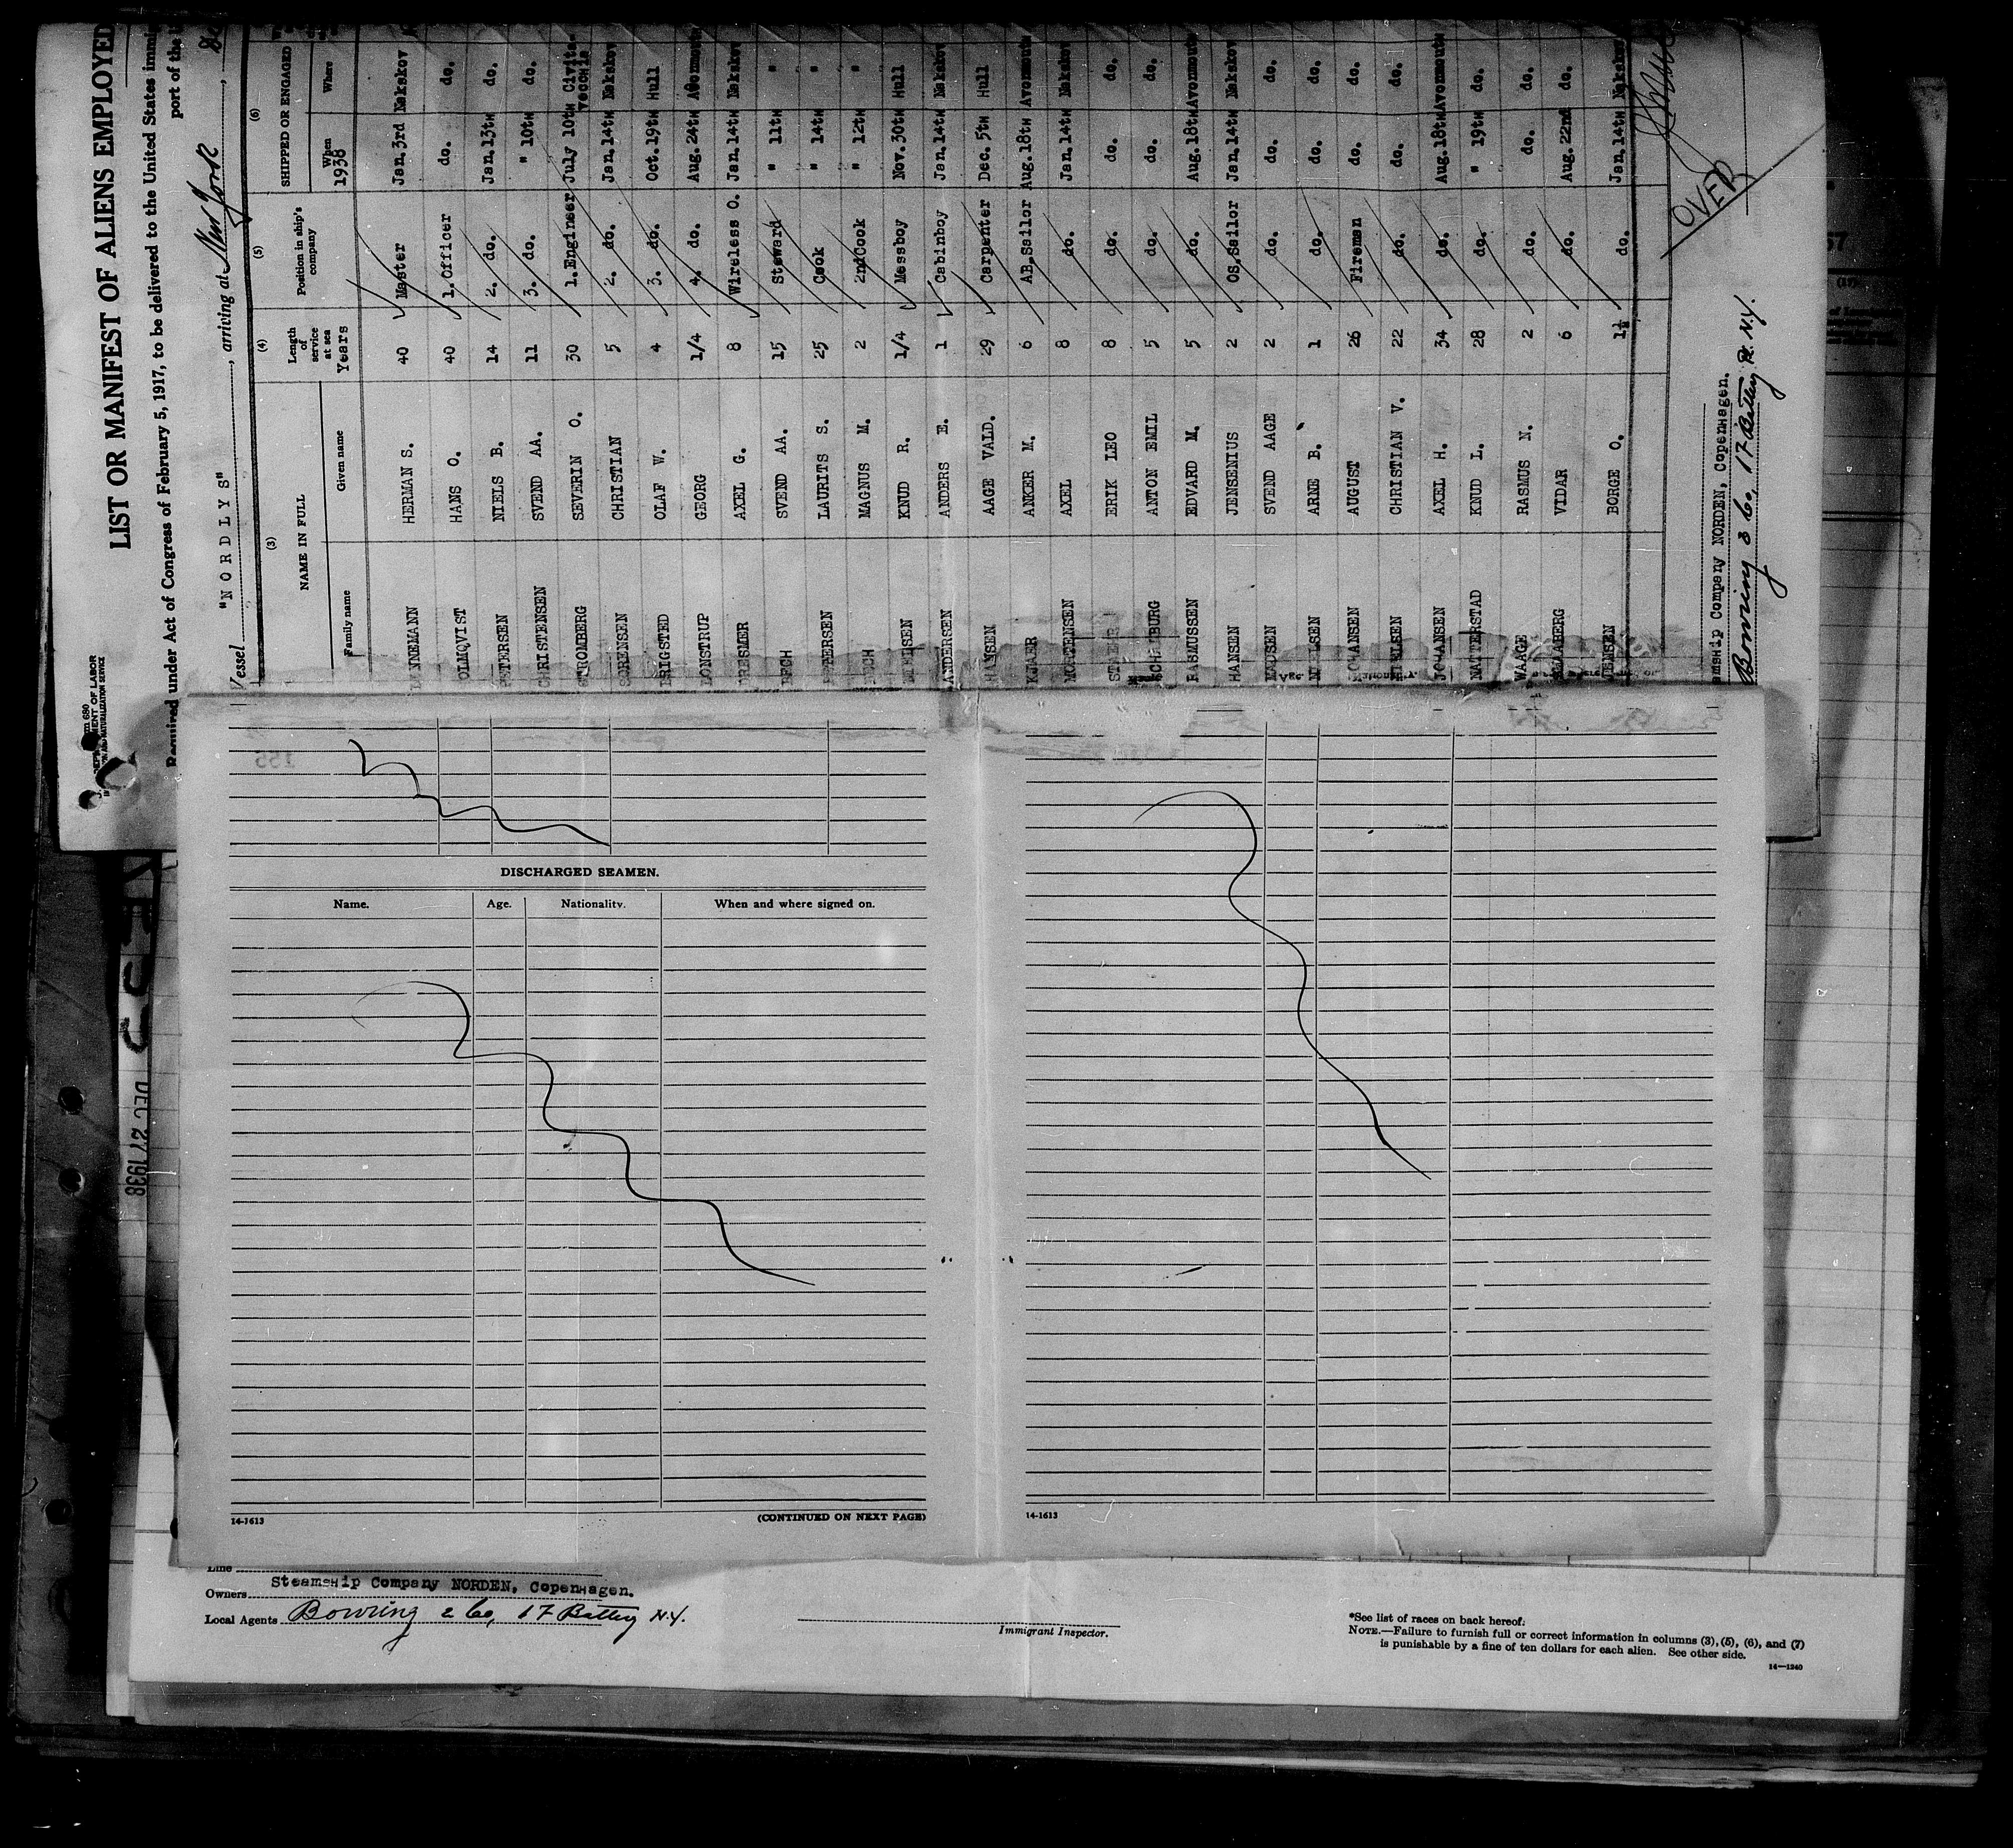 LIST OR MANIFEST OF ALIENS EMPLOYED
Required under Act of Congress of February 5, 1917, to be delivered to the United States immi
port of the
Vessel "NORDLYS", arriving at New York
(3) (4) (5) (6)
NAME IN FULL Length of service at sea Position in ship's company SHIPPED OR ENGAGED
Family name Given name Years When 1938 Where
NNEMANN HERMAN S. 40 Master Jan. 3rd Nakskov
OLMQVIST HANS O. 40 1. Officer do. do.
PETERSEN NIELS B. 14 2. do. Jan. 13th do.
CHRISTENSEN SVEND AA. 11 3. do. " 10th do.
STROMBERG SEVERIN O. 30 1. Engineer July 10th Civita-vecchia
SORENSEN CHRISTIAN 5 2. do. Jan. 14th Nakskov
BRIGSTED OLAF W. 4 3. do. Oct. 19th Hull
LONSTRUP GEORG 1/4 4. do. Aug. 24th Avonmouth
AXEL G. 8 Wireless O. Jan. 14th Nakskov
BECH SVEND AA. 15 Steward " 11th "
LAURITS S. 25 Cook " 14th "
BECH MAGNUS M. 2 2nd Cook " 12th "
KNUD R. 1/4 Messboy Nov. 30th Hull
ANDERSEN ANDERS E. 1 Cabinboy Jan. 14th Nakskov
HANSEN AAGE VALD. 29 Carpenter Dec. 5th Hull
KJAER ANKER M. 6 AB, Sailor Aug. 18th Avonmouth
MORTENSEN AXEL 8 do. Jan. 14th Nakskov
ERIK LEO 8 do. do. do.
SCHAUBURG ANTON EMIL 5 do. do. do.
RASMUSSEN EDVARD M. 5 do. Aug. 18th Avonmouth
HANSEN JENSENIUS 2 OS, Sailor Jan. 14th Nakskov
MADSEN SVEND AAGE 2 do. do. do.
NIELSEN ARNE B. 1 do. do. do.
JOHANSEN AUGUST 26 Fireman do. do.
CHRISTIAN V. 22 do. do. do.
JOHANSEN AXEL H. 34 do. Aug. 18th Avonmouth
NATTERSTAD KNUD L. 28 do. " 19th do.
WAAGE RASMUS N. 2 do. do. do.
VIDAR 6 do. Aug. 22nd do.
JENSEN BORGE O. 1½ do. Jan. 14th Nakskov
OVER
mship Company NORDEN, Copenhagen.
Bowring & Co, 17 Battery Pl. N.Y.
DEC 27 1938
155
DISCHARGED SEAMEN.
Name. Age. Nationality. When and where signed on.
14-1613 (CONTINUED ON NEXT PAGE)
14-1613
Line
Owners Steamship Company NORDEN, Copenhagen.
Local Agents Bowring & Co, 17 Battery N.Y.
Immigrant Inspector.
*See list of races on back hereof.
NOTE.—Failure to furnish full or correct information in columns (3), (5), (6), and (7)
is punishable by a fine of ten dollars for each alien. See other side.
14—1240